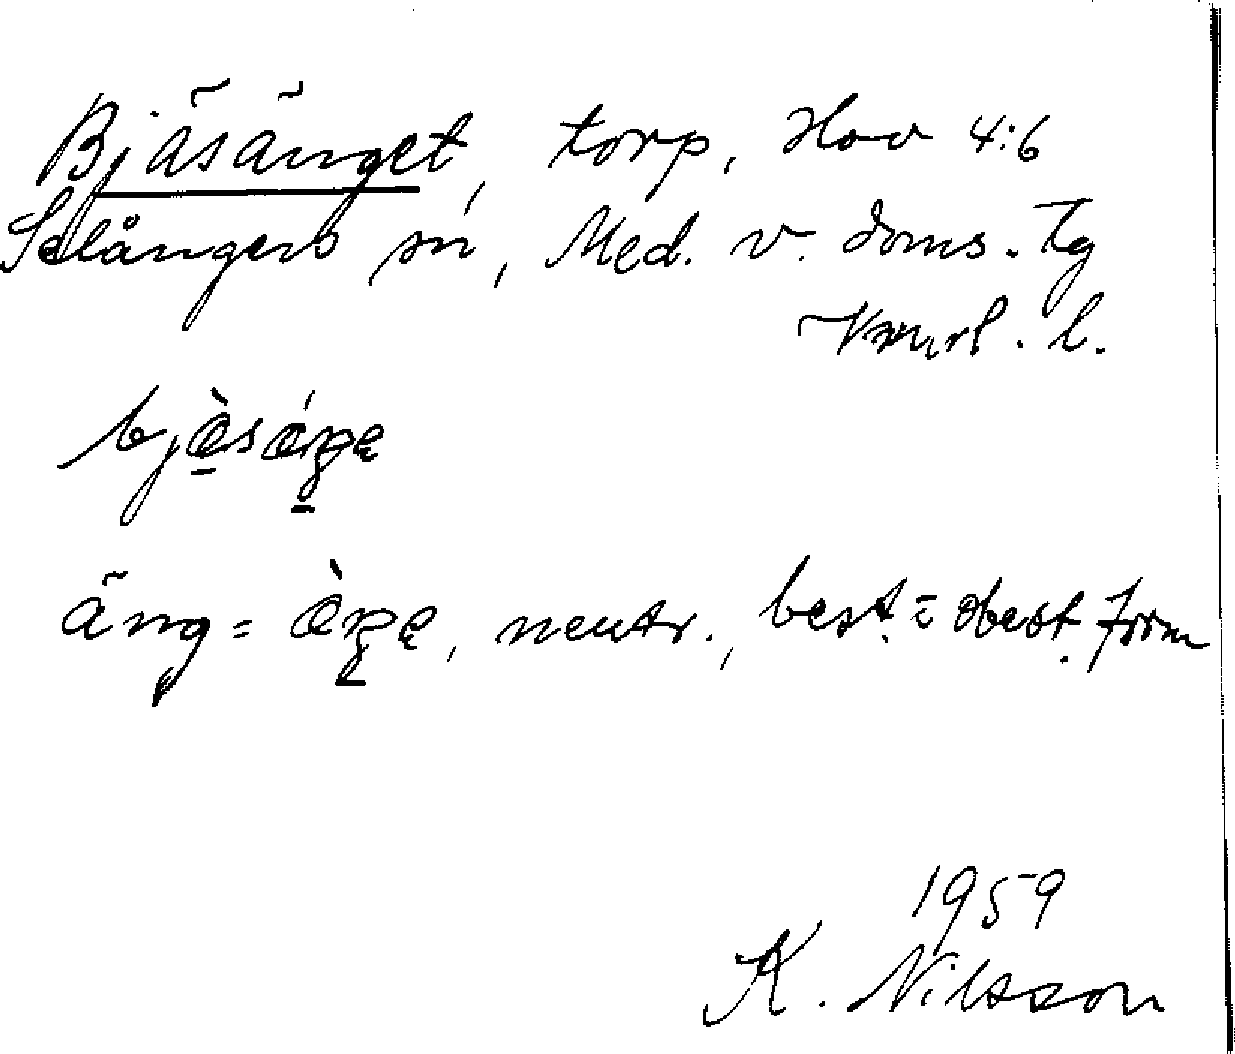 Bjäsänget, torp, Hov 4:6
Selångers sn, Med. v. doms. Tg
l.
bjæ̀sǽŋe
äng = æ̀ŋe, neutr., best. = obest. form
1959
K. Nilsson